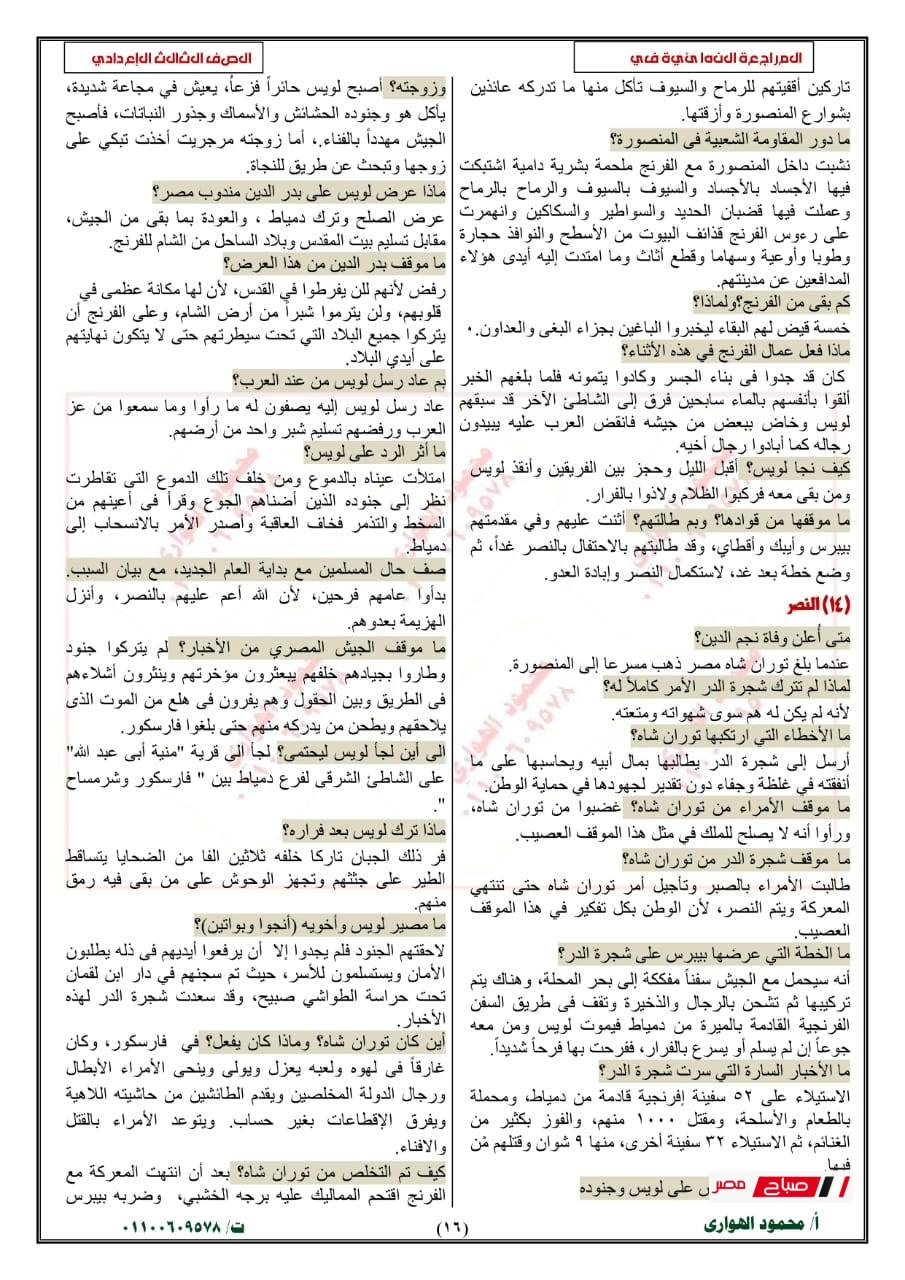 المراجعة النهائية في
الصف الثالث الإعدادي
تاركين أقفيتهم للرماح والسيوف تأكل منها ما تدركه عائذين
بشوارع المنصورة وأزقتها.
ما دور المقاومة الشعبية فى المنصورة؟
نشبت داخل المنصورة مع الفرنج ملحمة بشرية دامية اشتبكت
فيها الأجساد بالأجساد والسيوف بالسيوف والرماح بالرماح
وعملت فيها قضبان الحديد والسواطير والسكاكين وانهمرت
على رءوس الفرنج قذائف البيوت من الأسطح والنوافذ حجارة
وطوبا وأوعية وسهاما وقطع أثاث وما امتدت إليه أيدى هؤلاء
المدافعين عن مدينتهم.
كم بقى من الفرنج؟ولماذا؟
خمسة قيض لهم البقاء ليخبروا الباغين بجزاء البغى والعداون.
ماذا فعل عمال الفرنج في هذه الأثناء؟
كان قد جدوا فى بناء الجسر وكادوا يتمونه فلما بلغهم الخبر
ألقوا بأنفسهم بالماء سابحين فرق إلى الشاطئ الآخر قد سبقهم
لويس وخاض ببعض من جيشه فانقض العرب عليه يبيدون
رجاله كما أبادوا رجال أخيه.
كيف نجا لويس؟ أقبل الليل وحجز بين الفريقين وأنقذ لويس
ومن بقى معه فركبوا الظلام ولاذوا بالفرار.
ما موقفها من قوادها؟ وبم طالتهم؟ أثنت عليهم وفي مقدمتهم
بيبرس وأيبك وأقطاي، وقد طالبتهم بالاحتفال بالنصر غداً، ثم
وضع خطة بعد غد، لاستكمال النصر وإبادة العدو.
(١٤) النصر
متى أُعلن وفاة نجم الدين؟
عندما بلغ توران شاه مصر ذهب مسرعا إلى المنصورة.
لماذا لم تترك شجرة الدر الأمر كاملاً له؟
لأنه لم يكن له هم سوى شهواته ومتعته.
ما الأخطاء التي ارتكبها توران شاه؟
أرسل إلى شجرة الدر يطالبها بمال أبيه ويحاسبها على ما
أنفقته في غلظة وجفاء دون تقدير لجهودها في حماية الوطن.
ما موقف الأمراء من توران شاه؟ غضبوا من توران شاه،
ورأوا أنه لا يصلح للملك في مثل هذا الموقف العصيب.
ما موقف شجرة الدر من توران شاه؟
طالبت الأمراء بالصبر وتأجيل أمر توران شاه حتى تنتهي
المعركة ويتم النصر، لأن الوطن بكل تفكير في هذا الموقف
العصيب.
ما الخطة التي عرضها بيبرس على شجرة الدر؟
أنه سيحمل مع الجيش سفناً مفككة إلى بحر المحلة، وهناك يتم
تركيبها ثم تشحن بالرجال والذخيرة وتقف فى طريق السفن
الفرنجية القادمة بالميرة من دمياط فيموت لويس ومن معه
جوعاً إن لم يسلم أو يسرع بالفرار، ففرحت بها فرحاً شديداً.
ما الأخبار السارة التي سرت شجرة الدر؟
الاستيلاء على ٥٢ سفينة إفرنجية قادمة من دمياط، ومحملة
بالطعام والأسلحة، ومقتل ١٠٠٠ منهم، والفوز بكثير من
الغنائم، ثم الاستيلاء ٣٢ سفينة أخرى، منها ٩ شوان وقتلهم مْن
فيها.
على لويس وجنوده
وزوجته؟ أصبح لويس حائراً فزعاً، يعيش في مجاعة شديدة،
يأكل هو وجنوده الحشائش والأسماك وجذور النباتات، فأصبح
الجيش مهدداً بالفناء.، أما زوجته مرجريت أخذت تبكي على
زوجها وتبحث عن طريق للنجاة.
ماذا عرض لويس على بدر الدين مندوب مصر؟
عرض الصلح وترك دمياط ، والعودة بما بقى من الجيش،
مقابل تسليم بيت المقدس وبلاد الساحل من الشام للفرنج.
ما موقف بدر الدين من هذا العرض؟
رفض لأنهم للن يفرطوا في القدس، لأن لها مكانة عظمى في
قلوبهم، ولن يترموا شبراً من أرض الشام، وعلى الفرنج أن
يتركوا جميع البلاد التي تحت سيطرتهم حتى لا يتكون نهايتهم
على أيدي البلاد.
بم عاد رسل لويس من عند العرب؟
عاد رسل لويس إليه يصفون له ما رأوا وما سمعوا من عز
العرب ورفضهم تسليم شبر واحد من أرضهم.
ما أثر الرد على لويس؟
امتلأت عيناه بالدموع ومن خلف تلك الدموع التى تقاطرت
نظر إلى جنوده الذين أضناهم الجوع وقرأ فى أعينهم من
السخط والتذمر فخاف العاقبة وأصدر الأمر بالانسحاب إلى
دمياط.
صف حال المسلمين مع بداية العام الجديد، مع بيان السبب.
بدأوا عامهم فرحين، لأن الله أعم عليهم بالنصر، وأنزل
الهزيمة بعدوهم.
ما موقف الجيش المصري من الأخبار؟ لم يتركوا جنود
وطاروا بجيادهم خلفهم يبعثرون مؤخرتهم وينثرون أشلاءهم
فى الطريق وبين الحقول وهم يفرون فى هلع من الموت الذى
يلاحقهم ويطحن من يدركه منهم حتى بلغوا فارسكور.
الى أين لجأ لويس ليحتمى؟ لجأ الى قرية "منية أبى عبد الله"
على الشاطئ الشرقى لفرع دمياط بين " فارسكور وشرمساح
".
ماذا ترك لويس بعد فراره؟
فر ذلك الجبان تاركا خلفه ثلاثين الفا من الضحايا يتساقط
الطير على جثثهم وتجهز الوحوش على من بقى فيه رمق
منهم.
ما مصير لويس وأخويه (أنجوا وبواتين)؟
لاحقتهم الجنود فلم يجدوا إلا أن يرفعوا أيديهم فى ذله يطلبون
الأمان ويستسلمون للأسر، حيث تم سجنهم في دار ابن لقمان
تحت حراسة الطواشي صبيح، وقد سعدت شجرة الدر لهذه
الأخبار.
أين كان توران شاه؟ وماذا كان يفعل؟ في فارسكور، وكان
غارقاً فى لهوه ولعبه يعزل ويولى وينحى الأمراء الأبطال
ورجال الدولة المخلصين ويقدم الطائشين من حاشيته اللاهية
ويفرق الإقطاعات بغير حساب. ويتوعد الأمراء بالقتل
والافناء.
كيف تم التخلص من توران شاه؟ بعد أن انتهت المعركة مع
الفرنج اقتحم المماليك عليه برجه الخشبي، وضربه بيبرس
صباح مصر
أ/ محمود الهوارى
(١٦)
ت/ ٠١١٠٠٦٠٩٥٧٨